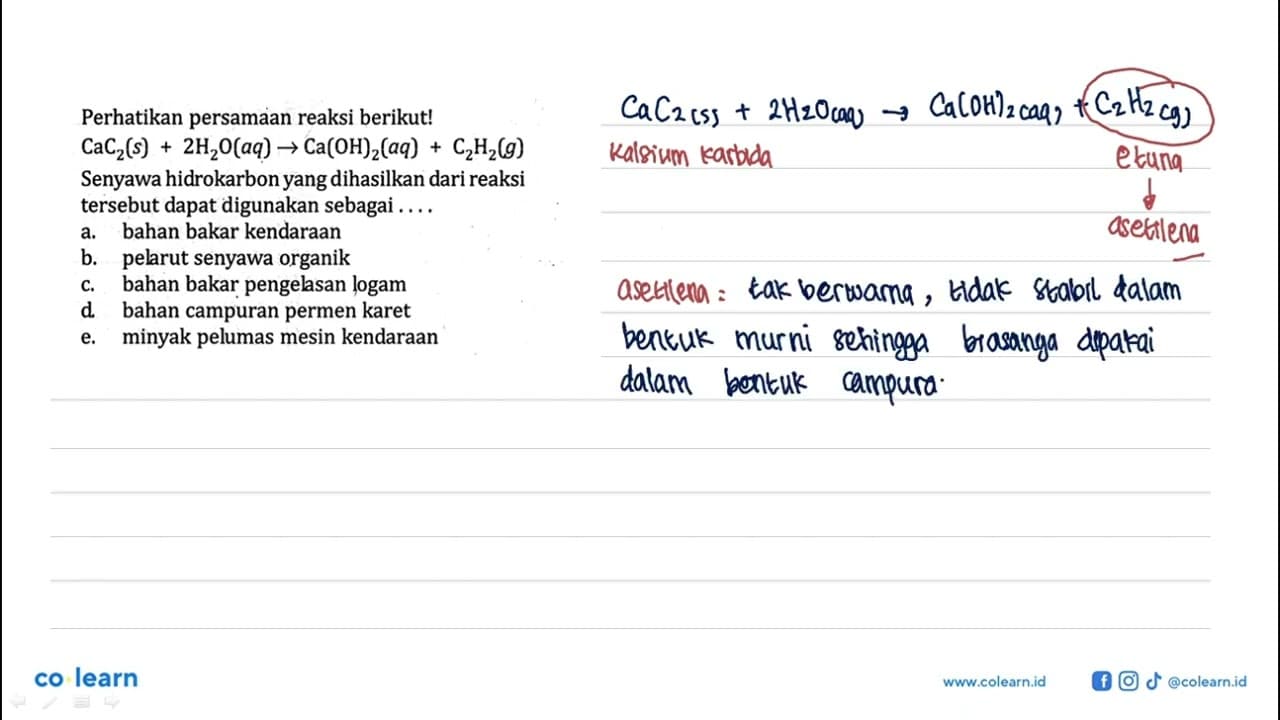 Perhatikan persamaan reaksi berikut!
CaC₂(s) + 2H₂O(aq) → Ca(OH)₂(aq) + C₂H₂(g)
Senyawa hidrokarbon yang dihasilkan dari reaksi
tersebut dapat digunakan sebagai . . . .
a. bahan bakar kendaraan
b. pelarut senyawa organik
c. bahan bakar pengelasan logam
d. bahan campuran permen karet
e. minyak pelumas mesin kendaraan
CaC₂(s) + 2H₂O(aq) → Ca(OH)₂(aq) + C₂H₂(g)
Kalsium karbida
etuna
↓
asetilena
asetilena : tak berwarna, tidak stabil dalam
bentuk murni sehingga biasanya dipakai
dalam bentuk campura.
co learn
www.colearn.id
@colearn.id